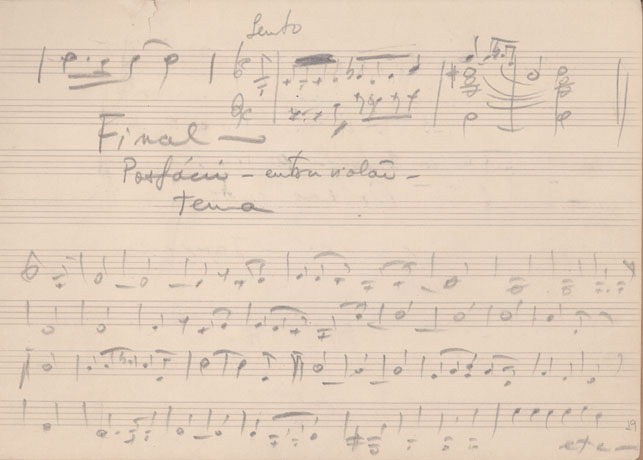 Lento
Final
Posfácio - entra violão -
tema
etc
19